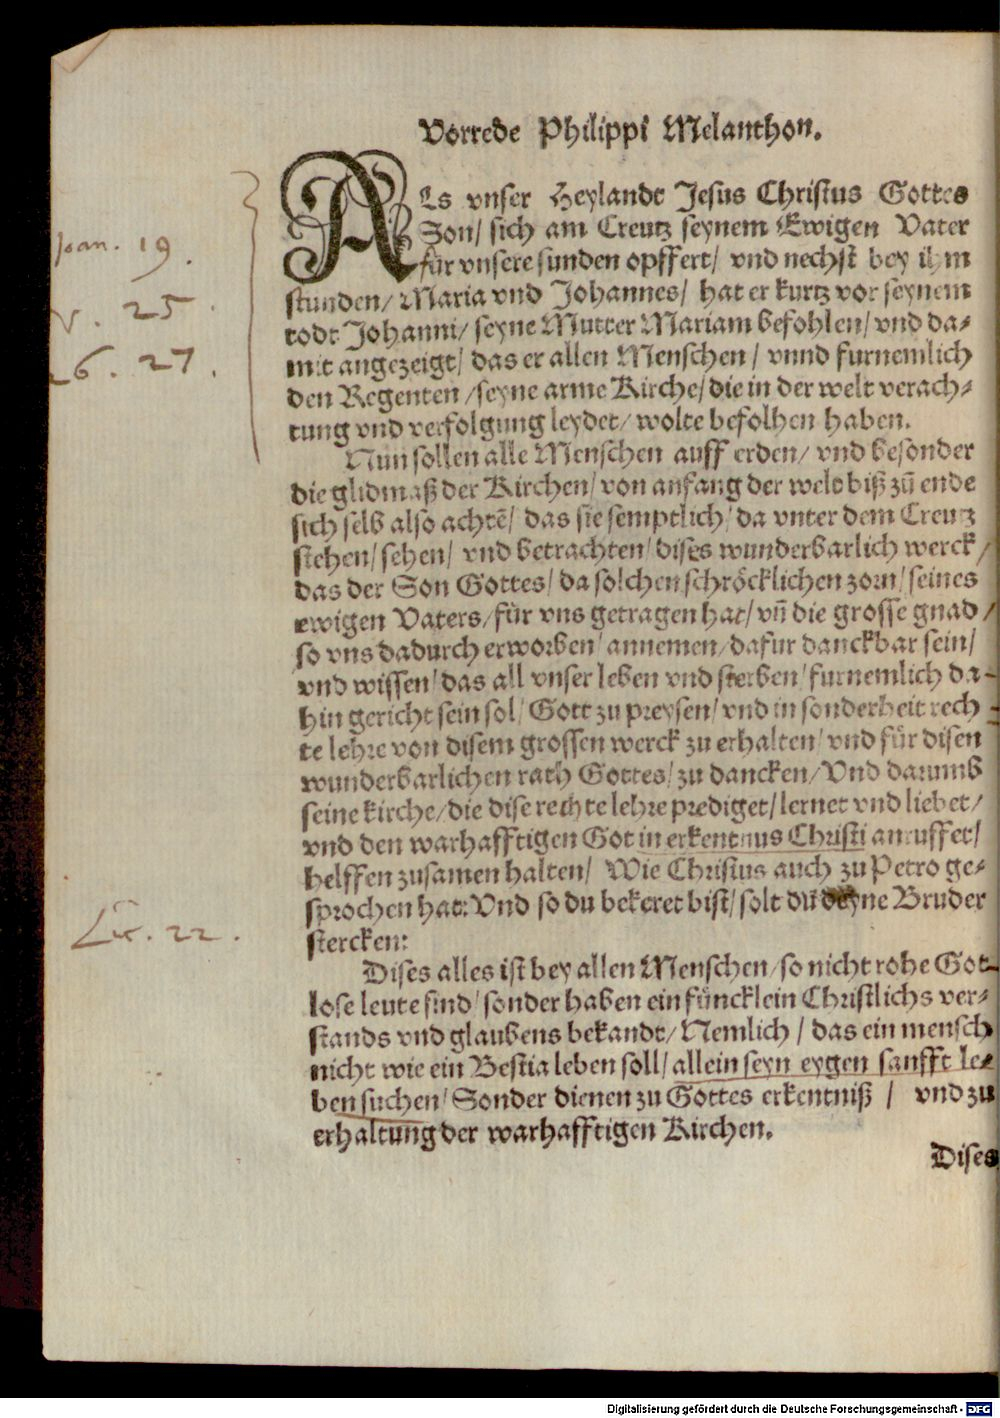 Vorrede Philippi Melanthon.
ALs vnser Heylandt Jesus Christus Gottes
Son/ sich am Creutz seynem Ewigen Vater
für vnsere sunden opffert/ vnd nechst bey ihm
stunden/ Maria vnd Johannes/ hat er kurtz vor seynem
todt Johanni/ seyne Mutter Mariam befohlen/ vnd da-
mit angezeigt/ das er allen Menschen/ vnnd furnemlich
den Regenten/ seyne arme Kirche/ die in der welt verach-
tung vnd verfolgung leydet/ wolte befolhen haben.
Nun sollen alle Menschen auff erden/ vnd besonder
die glidmaß der Kirchen/ von anfang der welt biß zů ende
sich selb also achtē/ das sie semptlich/ da vnter dem Creutz
stehen/ sehen/ vnd betrachten/ dises wunderbarlich werck/
das der Son Gottes/ da solchen schröcklichen zorn/ seines
ewigen Vaters/ für vns getragen hat/ vn̄ die grosse gnad/
so vns dadurch erworben/ annemen/ dafur danckbar sein/
vnd wissen/ das all vnser leben vnd sterben/ furnemlich da-
hin gericht sein sol/ Gott zu preysen/ vnd in sonderheit rech-
te lehre von disem grossen werck zu erhalten/ vnd für disen
wunderbarlichen rath Gottes/ zu dancken/ Vnd darumb
seine kirche/ die dise rechte lehre prediget/ lernet vnd liebet/
vnd den warhafftigen Got in erkentnus Christi anruffet/
helffen zusamen halten/ Wie Christus auch zu Petro ge-
sprochen hat: Vnd so du bekeret bist/ solt du deyne Bruder
stercken:
Dises alles ist bey allen Menschen/ so nicht rohe Got-
lose leute sind/ sonder haben ein füncklein Christlichs ver-
stands vnd glaubens bekandt/ Nemlich/ das ein mensch
nicht wie ein Bestia leben soll/ allein seyn eygen sanfft le-
ben suchen/ Sonder dienen zu Gottes erkentniß/ vnd zu
erhaltung der warhafftigen Kirchen.
Dises
Joan. 19.
v. 25.
26. 27.
Luc. 22.
Digitalisierung gefördert durch die Deutsche Forschungsgemeinschaft - DFG